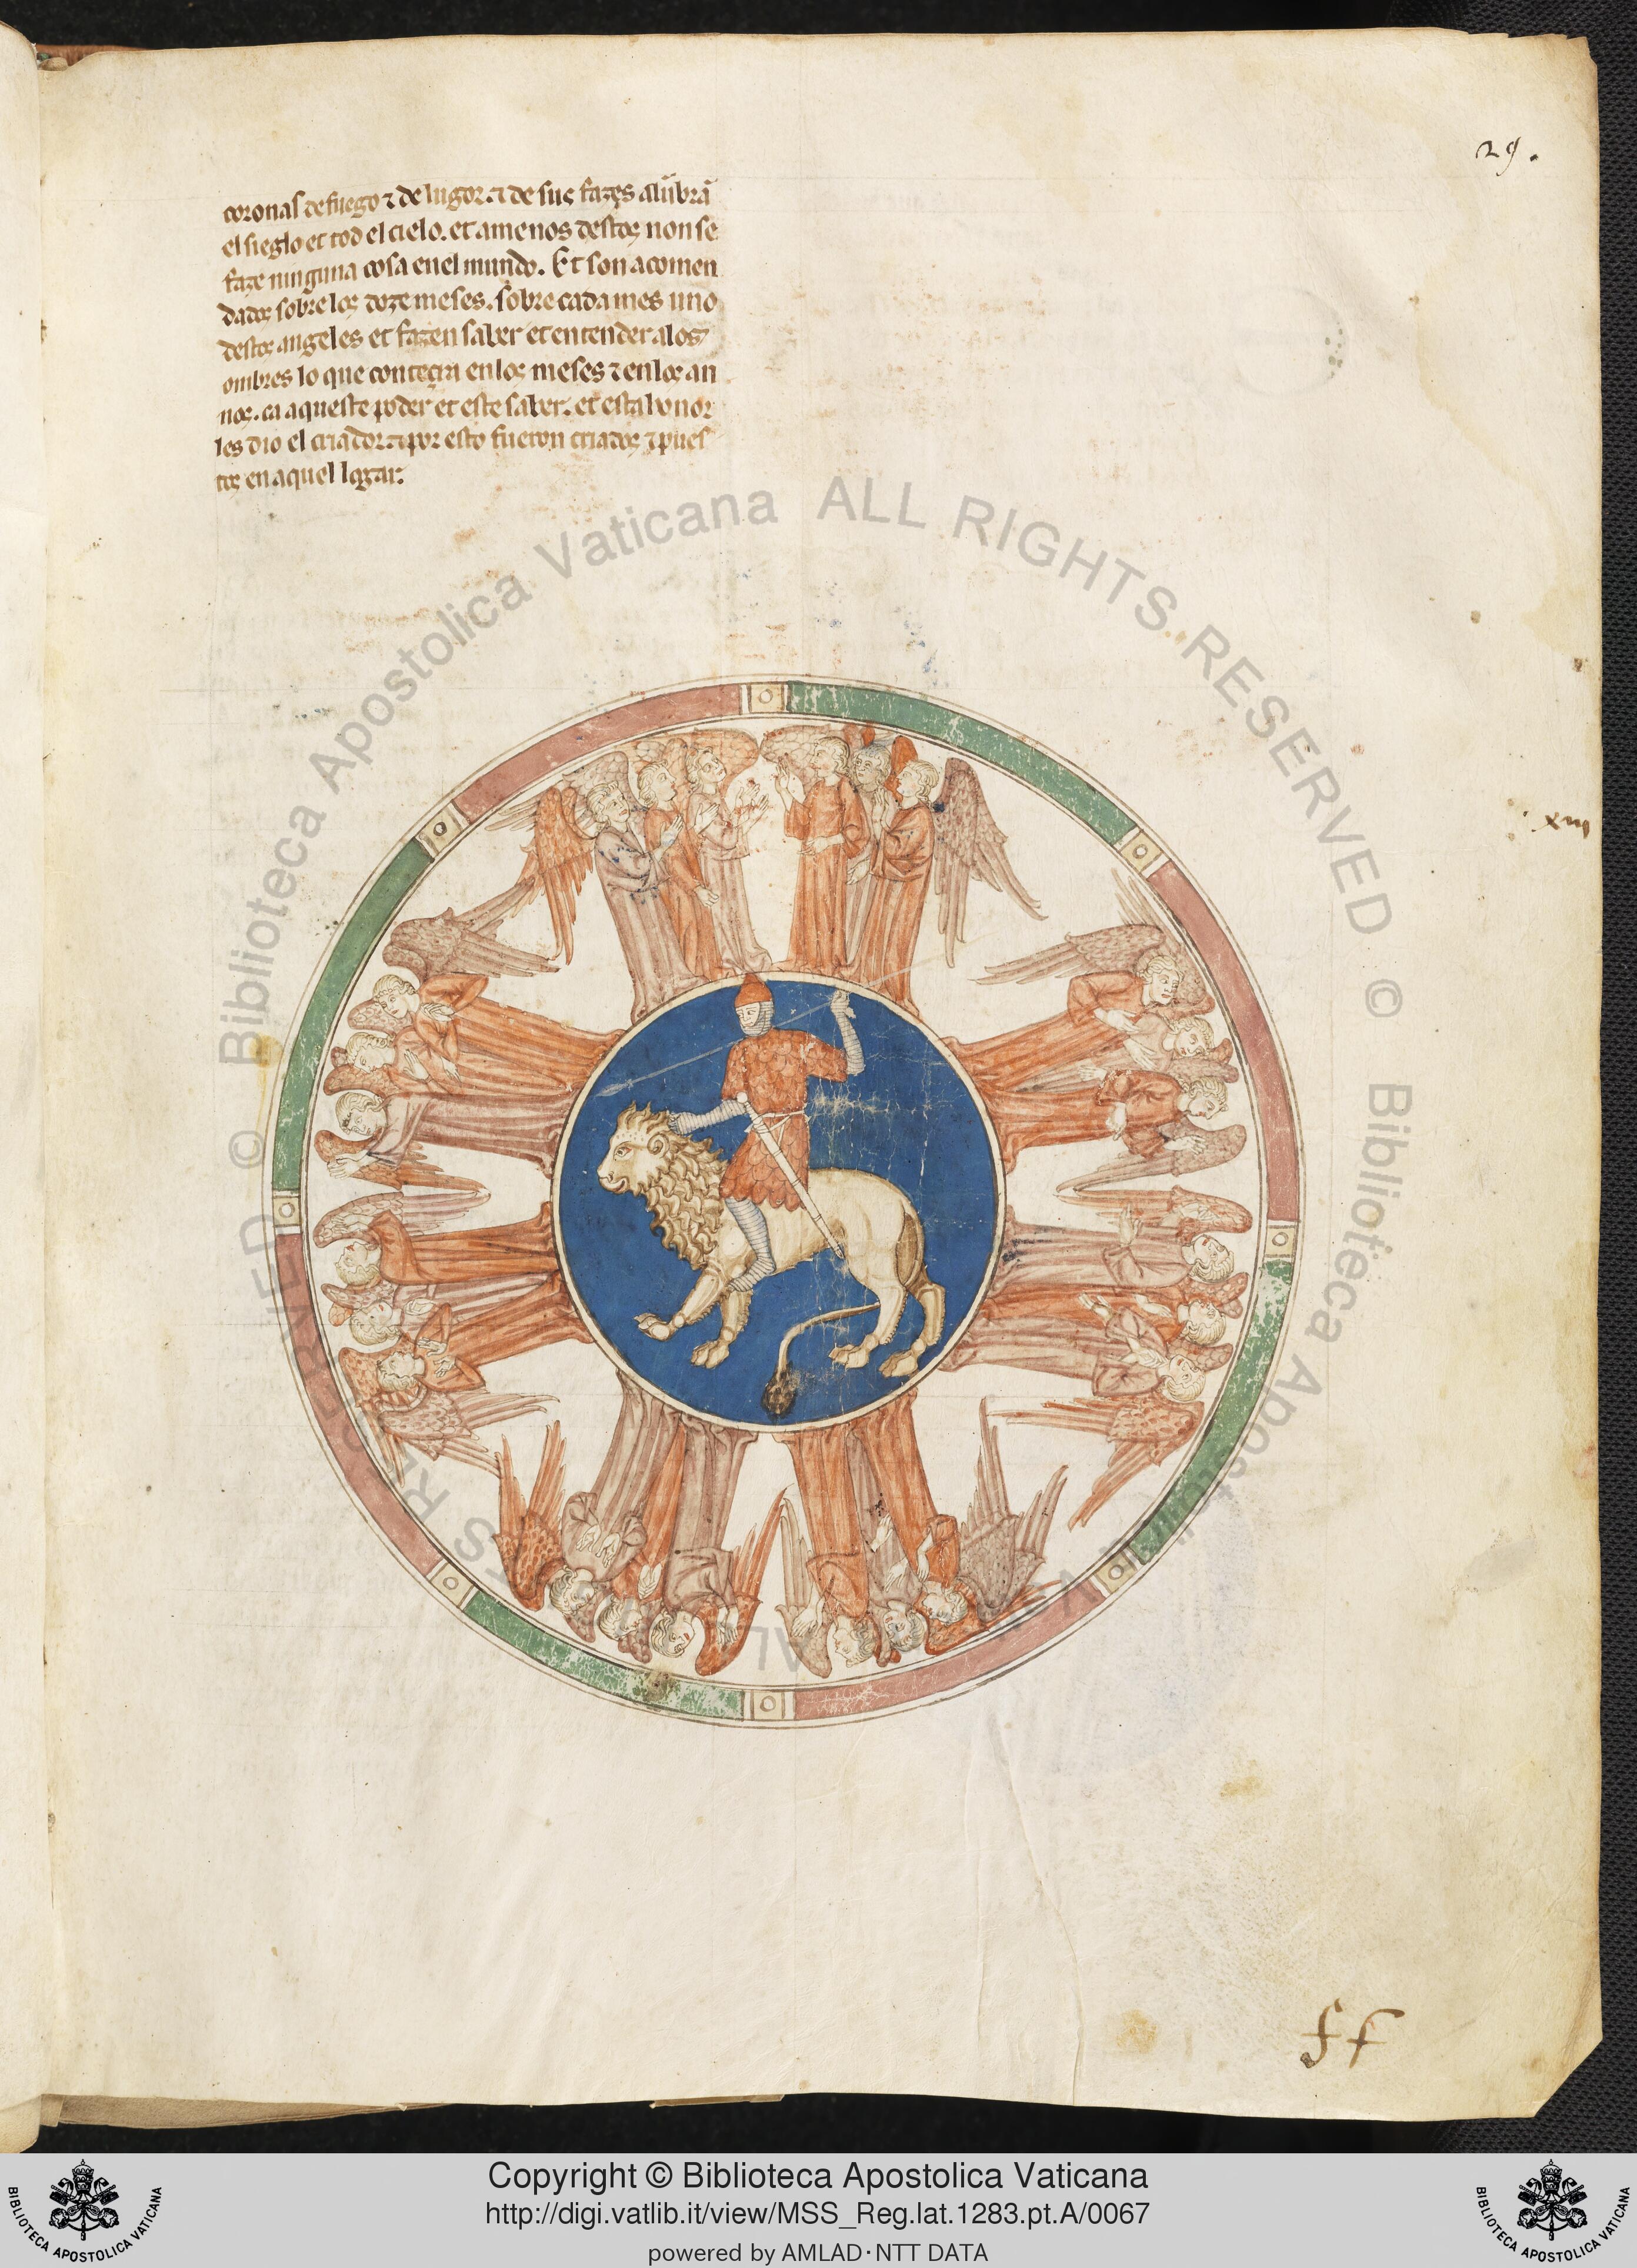 29.
coronas de fuego ⁊ de lugor. ⁊ de sus fazes alūbrā
el sieglo et tod el cielo. et a menos destos non se
faze ninguna cosa en el mundo. Et son acomen
dados sobre los doze meses. sobre cada mes uno
destos angeles et fazen saber et entender a los
ombres lo que conteçra en los meses ⁊ en los an
nos. ca aqueste poder et este saber. et esta honor
les dio el criador. ⁊ por esto fueron criados ⁊ pues
tos en aquel logar.
xiij
ff
© Biblioteca Apostolica Vaticana ALL RIGHTS RESERVED © Biblioteca Apostolica Vaticana ALL RIGHTS RESERVED
Copyright © Biblioteca Apostolica Vaticana
http://digi.vatlib.it/view/MSS_Reg.lat.1283.pt.A/0067
powered by AMLAD·NTT DATA
BIBLIOTECA APOSTOLICA VATICANA
BIBLIOTECA APOSTOLICA VATICANA